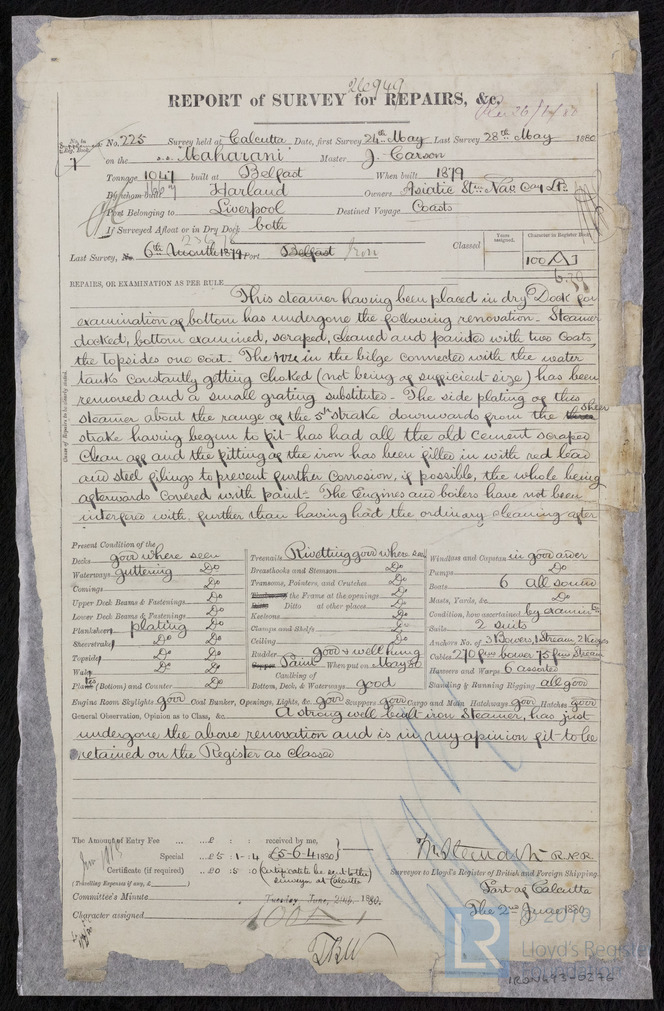 26949
REPORT of SURVEY for REPAIRS, &c.
No. 225 Survey held at Calcutta Date, first Survey 24th May Last Survey 28th May 1880
on the s.s. Maharani Master J. Carson
Tonnage 1047 built at Belfast When built 1879
By whom built Harland Owners Asiatic Stm Nav Coy Ld
Port Belonging to Liverpool Destined Voyage Coasts
If Surveyed Afloat or in Dry Dock both
Last Survey, No. 6th Month 1879 Port Belfast Iron
Classed
Years assigned.
Character in Register Book
100 A 1
6.79
REPAIRS, OR EXAMINATION AS PER RULE
Cause of Repairs to be clearly stated.
This steamer having been placed in dry Dock for
examination of bottom has undergone the following renovation. Steamer
docked, bottom examined, scraped, cleaned and painted with two coats,
the topsides one coat. The in the bilge connected with the water
tanks constantly getting choked (not being of sufficient size) has been
removed and a small grating substituted. The side plating of this
steamer about the range of the 5th strake downwards from the sheer
strake having begun to pit has had all the old cement scraped
clean off and the pitting of the iron has been filled in with red lead
and steel filings to prevent further corrosion, if possible, the whole being
afterwards covered with paint. The Engines and boilers have not been
interfered with further than having had the ordinary cleaning after
Present Condition of the
Decks good where seen
Waterways guttering Do
Comings Do
Upper Deck Beams & Fastenings Do
Lower Deck Beams & Fastenings Do
Planksheers plating Do
Sheerstrakes Do Do
Topsides Do Do
Wales Do Do
Plates (Bottom) and Counter Do
Treenails Rivetting good where seen
Breasthooks and Stemson Do
Transoms, Pointers, and Crutches Do
the Frame at the openings Do
Ditto at other places Do
Keelsons Do
Clamps and Shelfs Do
Ceiling Do
Rudder good & well hung
Copper Paint When put on May 80
Caulking of
Bottom, Deck, & Waterways good
Windlass and Capstan in good order
Pumps Do
Boats 6 all sound
Masts, Yards, &c. Do
Condition, how ascertained by examintn
Sails 2 suits
Anchors No. of 3 Bowers, 1 Stream 2 Kedges
Cables 270 fms bower 75 fms Stream
Hawsers and Warps 6 assorted
Standing & Running Rigging all good
Engine Room Skylights good Coal Bunker, Openings, Lights, &c. good Scuppers good Cargo and Main Hatchways good Hatches good
General Observation, Opinion as to Class, &c. A strong well built iron Steamer, has just
undergone the above renovation and is in my opinion fit to be
retained on the Register as classed
The Amount of Entry Fee ...£ : : received by me,
Special ...£5 : 1 : 4 (£5-6-4 1880)
Certificate (if required) ...£0 : 5 : 0 (Certificate to be sent to the
surveyor at Calcutta
(Travelling Expenses if any, £ )
Surveyor to Lloyd's Register of British and Foreign Shipping.
Port of Calcutta
The 2nd June 1880
Committee's Minute Tuesday June, 29th, 1880.
Character assigned 100 A 1
© 2019
LR
Lloyd's Register
Foundation
IRON693-0276